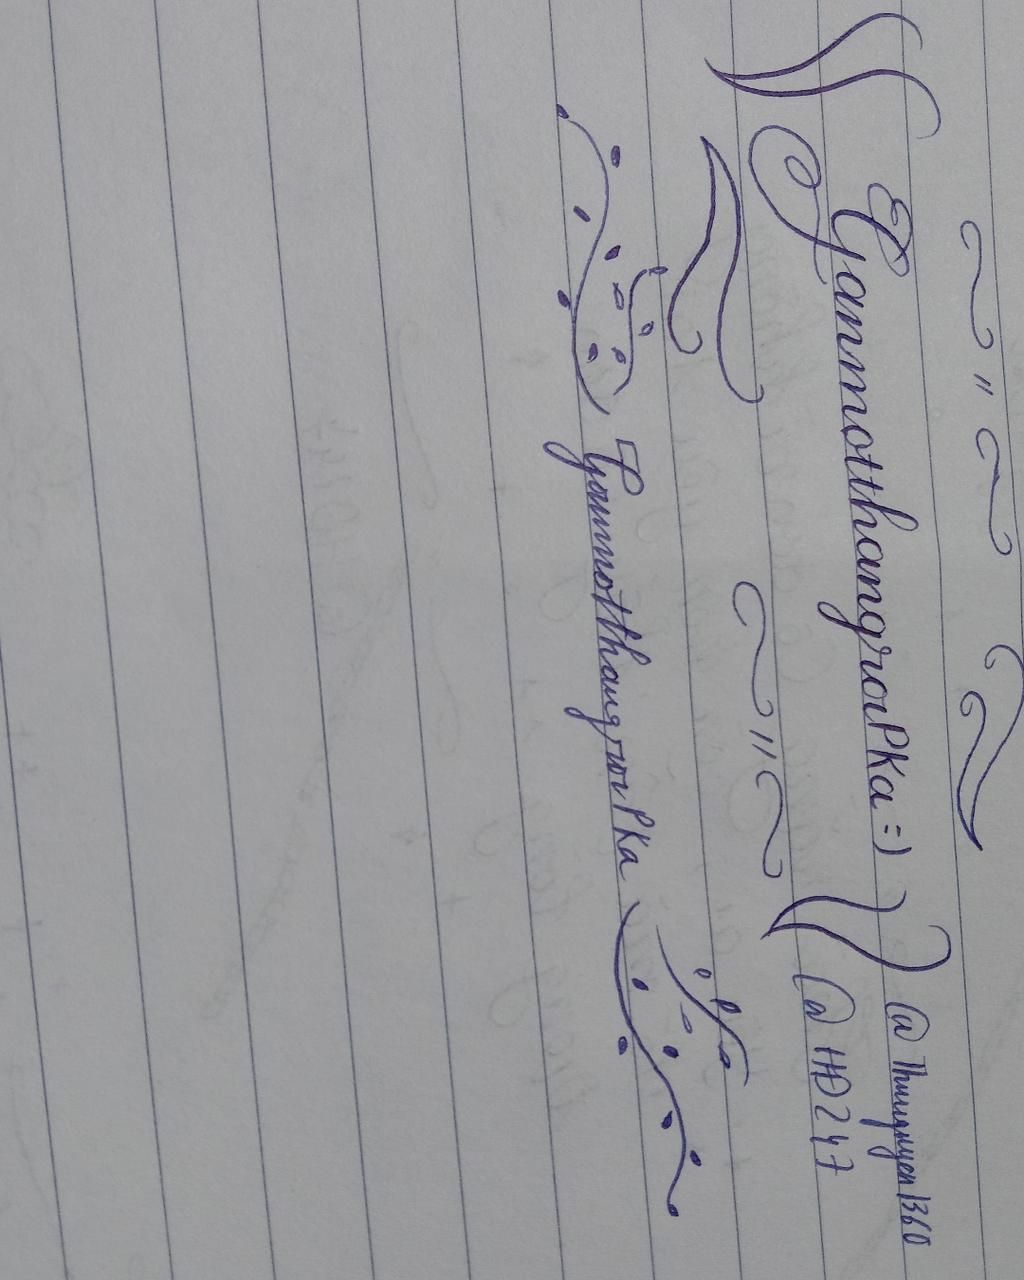 GanmotthangroiPKa =)
@Thuynguyen1360
@HĐ247
GanmotthangroiPKa